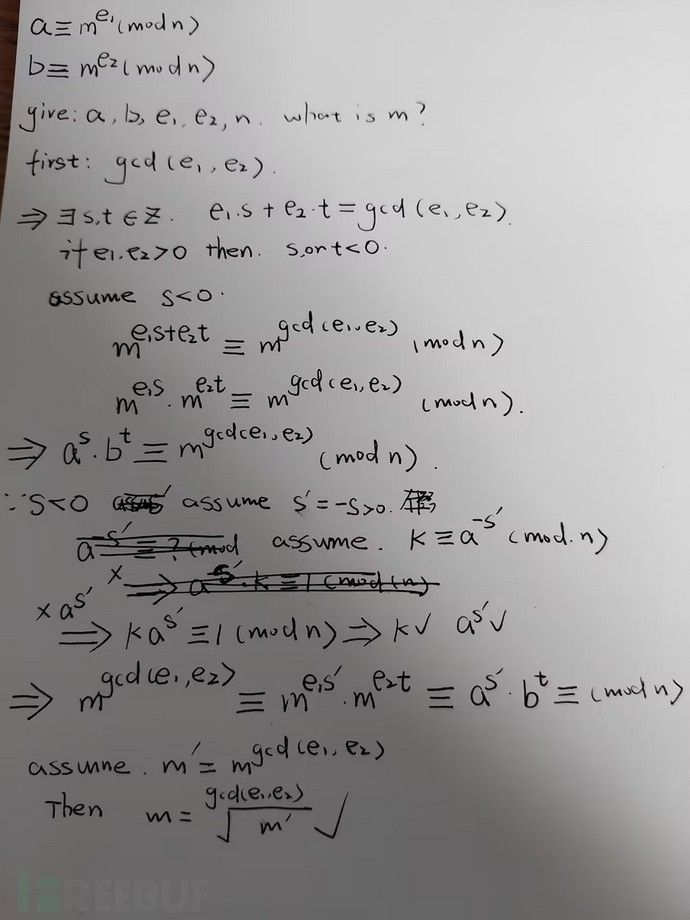 a≡m^e₁(mod n)
b≡m^e₂(mod n)
give: a, b, e₁, e₂, n. what is m?
first: gcd(e₁, e₂).
⇒ ∃ s,t ∈ Z. e₁·s + e₂·t = gcd(e₁, e₂).
if e₁.e₂>0 then. s, or t<0.
assume s<0.
m^(e₁s+e₂t) ≡ m^gcd(e₁,e₂) (mod n)
m^(e₁s) · m^(e₂t) ≡ m^gcd(e₁,e₂) (mod n).
⇒ a^s · b^t ≡ m^gcd(e₁,e₂) (mod n).
∵ s<0 assume s'=-s>0.
a^-s' ≡ ? (mod assume. K≡a^-s' (mod. n)
× ⇒ a^s'·k≡1 (mod(n)
×a^s' ⇒ Ka^s' ≡1 (mod n) ⇒ K√ a^s'√
⇒ m^gcd(e₁,e₂) ≡ m^(e₁s') · m^(e₂t) ≡ a^s' · b^t ≡ (mod n)
assume. m' = m^gcd(e₁, e₂)
Then m = ^gcd(e₁,e₂)√m' √
REEBUF